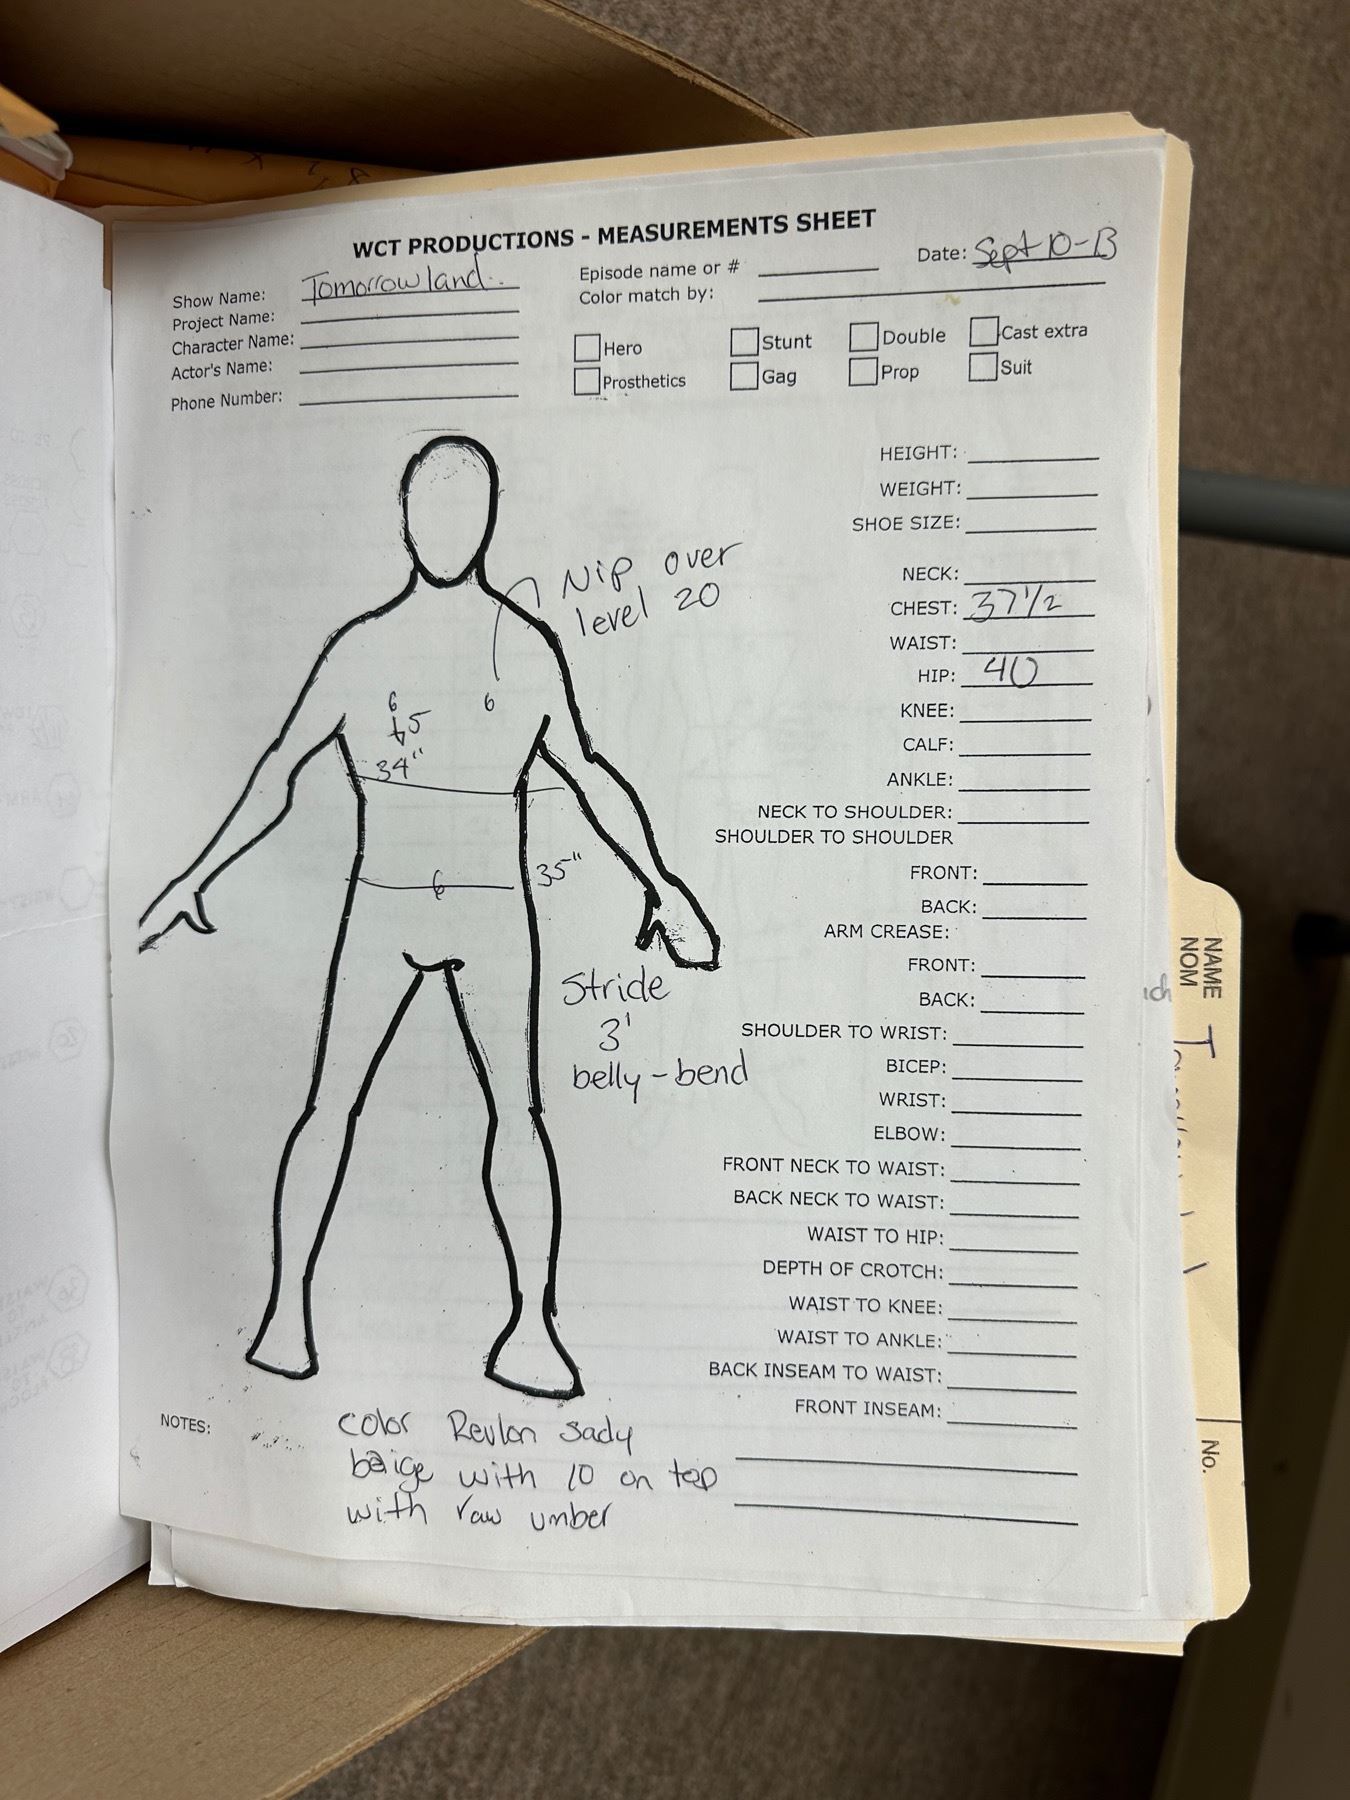 WCT PRODUCTIONS - MEASUREMENTS SHEET
Date: Sept 10-13
Show Name: Tomorrowland
Episode name or #
Project Name:
Color match by:
Character Name:
Actor's Name:
Phone Number:
Hero
Stunt
Double
Cast extra
Prosthetics
Gag
Prop
Suit
HEIGHT:
WEIGHT:
SHOE SIZE:
Nip over
level 20
NECK:
CHEST: 37 1/2
WAIST:
HIP: 40
KNEE:
CALF:
ANKLE:
NECK TO SHOULDER:
SHOULDER TO SHOULDER
FRONT:
BACK:
ARM CREASE:
FRONT:
BACK:
SHOULDER TO WRIST:
BICEP:
WRIST:
ELBOW:
FRONT NECK TO WAIST:
BACK NECK TO WAIST:
WAIST TO HIP:
DEPTH OF CROTCH:
WAIST TO KNEE:
WAIST TO ANKLE:
BACK INSEAM TO WAIST:
FRONT INSEAM:
5
34"
35"
Stride
3'
belly-bend
NOTES:
color Revlon sady
baige with 10 on top
with raw umber
NAME
NOM
No.